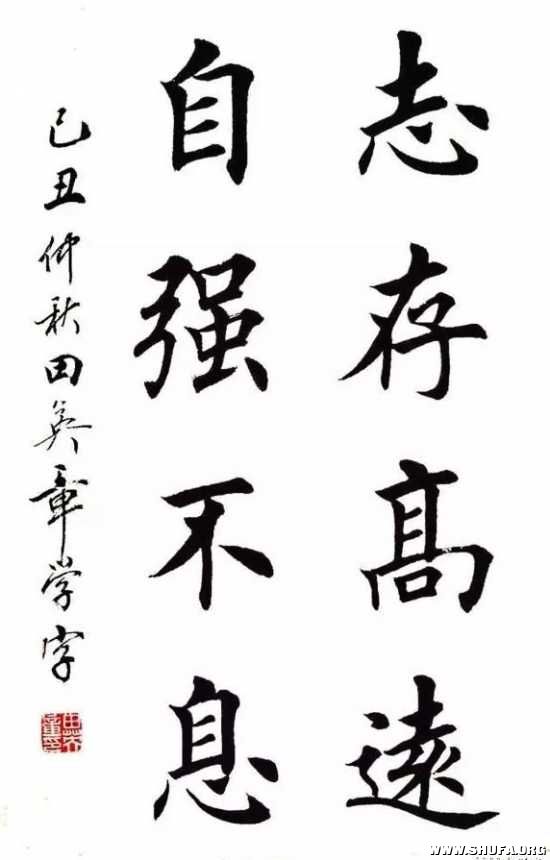 志存髙遠
自强不息
己丑仲秋田英章学字
WWW.SHUFA.ORG